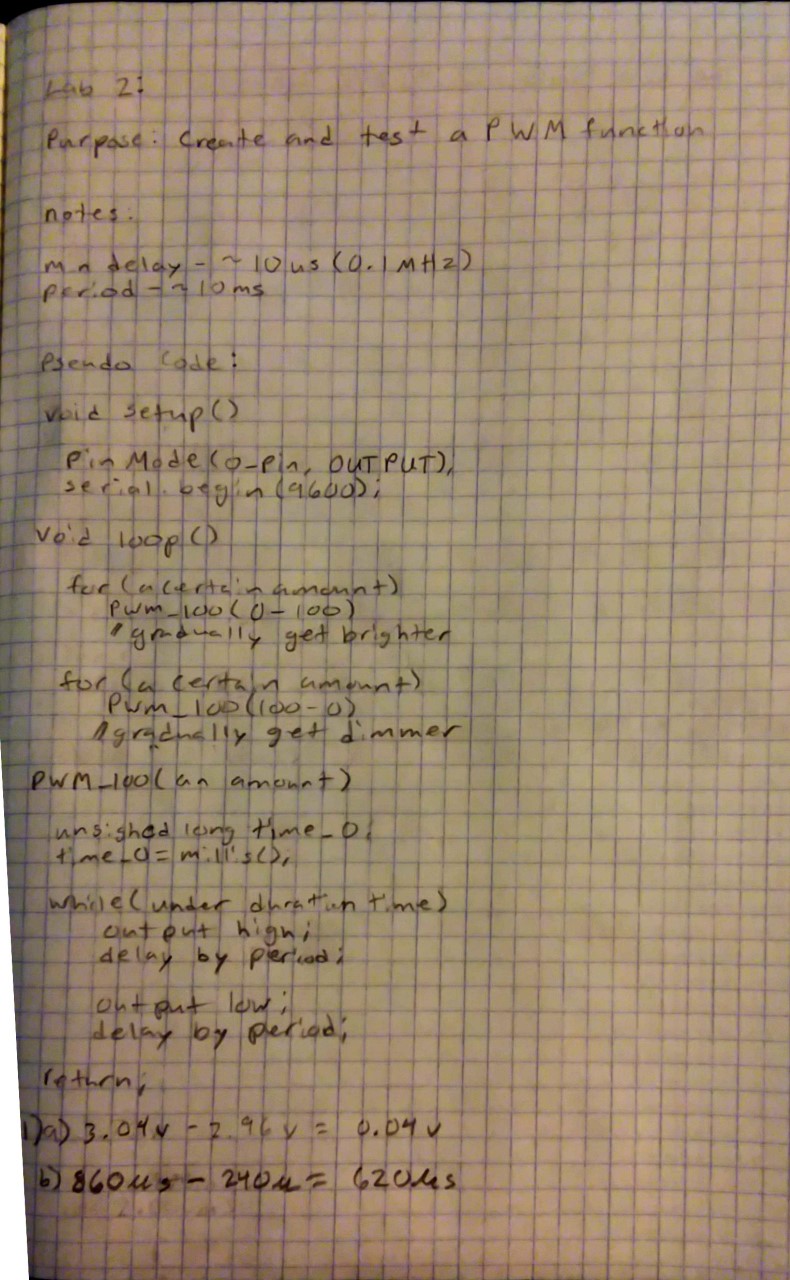 Lab 2:
Purpose: Create and test a PWM function
notes:
min delay - ~10us (0.1MHz)
period - ~10ms
Psendo Code:
void setup()
PinMode(o-Pin, OUTPUT);
serial.begin(9600);
void loop()
for (a certain amount)
Pwm_100(0-100)
//gradually get brighter
for (a certain amount)
Pwm_100(100-0)
//gradually get dimmer
PWM_100(an amount)
unsigned long time_0;
time_0=millis();
while(under duration time)
output high;
delay by period;
output low;
delay by period;
return;
1)a) 3.04v - 2.96v = 0.04v
b) 860us - 240u = 620us